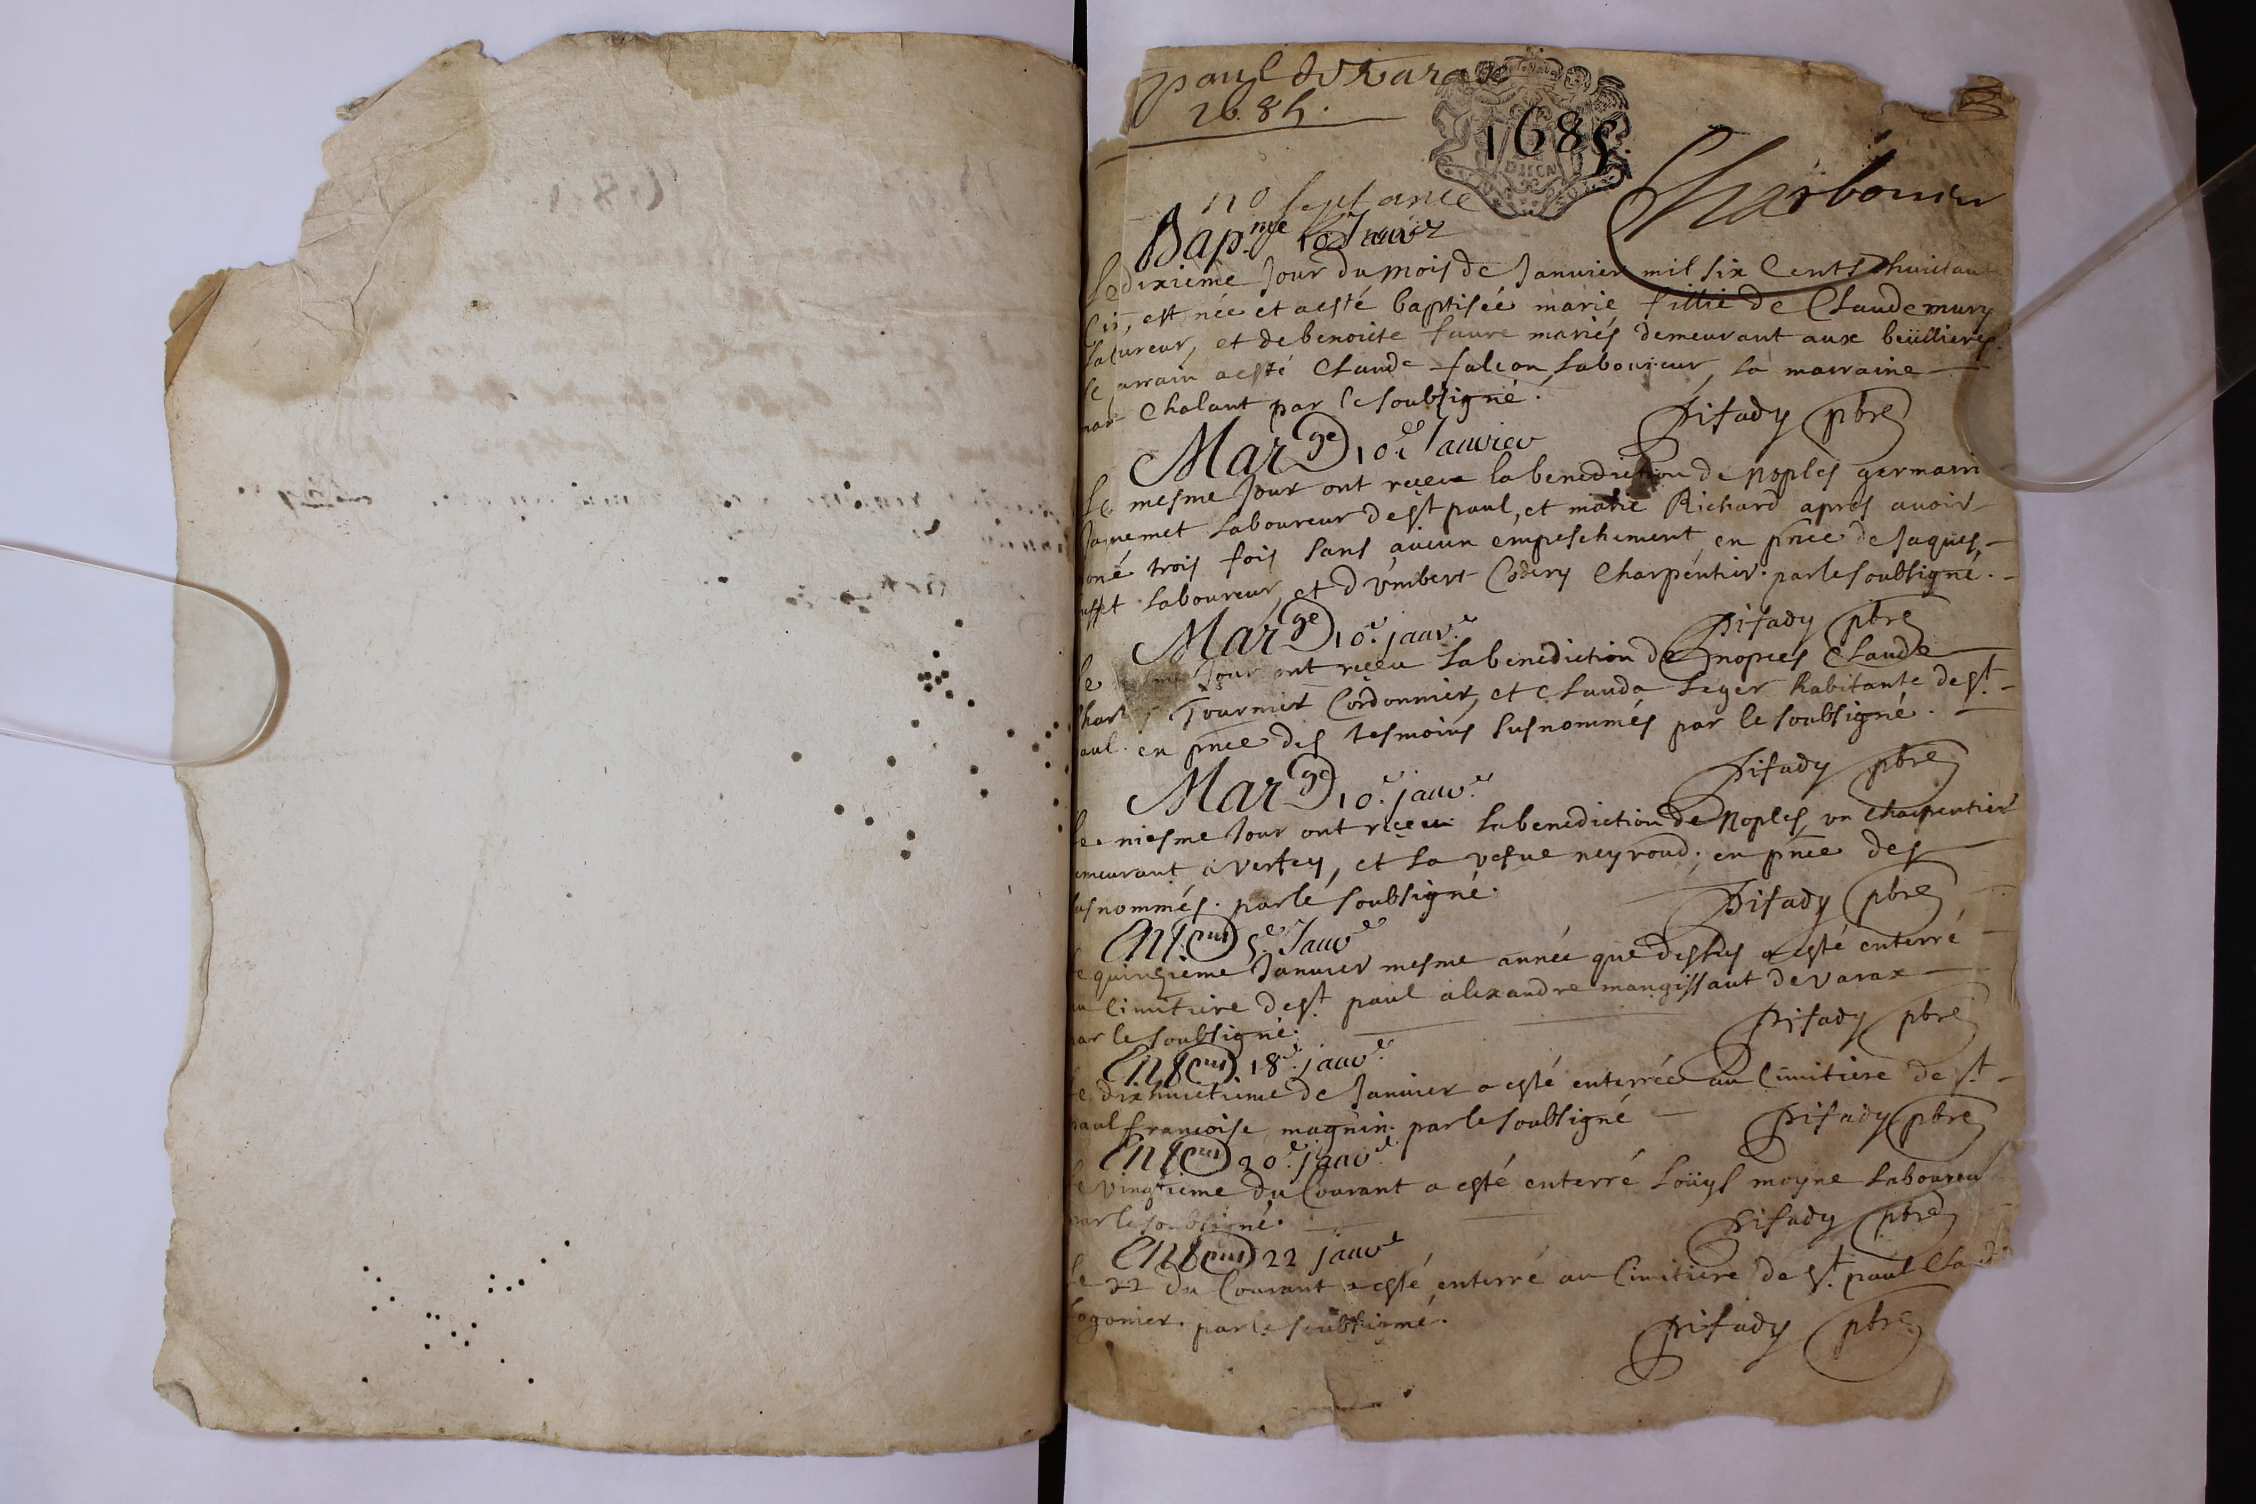 paul de varax
1685.
1685
DIJON
Charbonier
Bap.me 10e Janvr
Le dixieme Jour du mois de Janvier mil six Cents huictante
est née et a esté baptisée marie fillie de Claude mury
laboureur, et de benoiste faure mariés demeurant aux beüllieres.
le parrain a esté Claude falcon laboureur, la marraine
Chalant par le soubsigné.
Disady pbre
Mar.ge 10.e Janvier
Le mesme Jour ont receu la benediction de nopses germain
Jaquemet laboureur de st paul, et marie Richard apres avoir
trois fois sans aucun empeschement en pnce de Jaques
laboureur, et d'umbert Codery Charpentier. par le soubsigné.
Disady pbre
Mar.ge 10.e janv.r
le Jour ont receu la benediction de nopces Claude
Tournier Cordonnier, et Clauda leger habitante de st.
paul. en pnce des tesmoins susnommés par le soubsigné.
Disady pbre
Mar.ge 10.e janv.r
le mesme Jour ont receu la benediction de nopses, un charpentier
demeurant a versey, et la vesve neyroud. en pnce des
susnommés. par le soubsigné.
Disady pbre
Janv.e
le quinzieme Janvier mesme année que dessus a esté enterré
au Cimitiere de st. paul alexandre mangissaut de varax
par le soubsigné.
Disady pbre
18.e janv.r
le dixhuictieme de Janvier a esté enterrée au Cimitiere de st.
paul francoise magnin. par le soubsigné
Disady pbre
20.e janv.r
le vingtieme du Courant a esté enterré Loüys moyne laboureur
par le soubsigné.
Disady pbre
22 janv.r
Le 22 du Courant a esté enterré au Cimitiere de st. paul
par le soubsigné.
Disady pbre